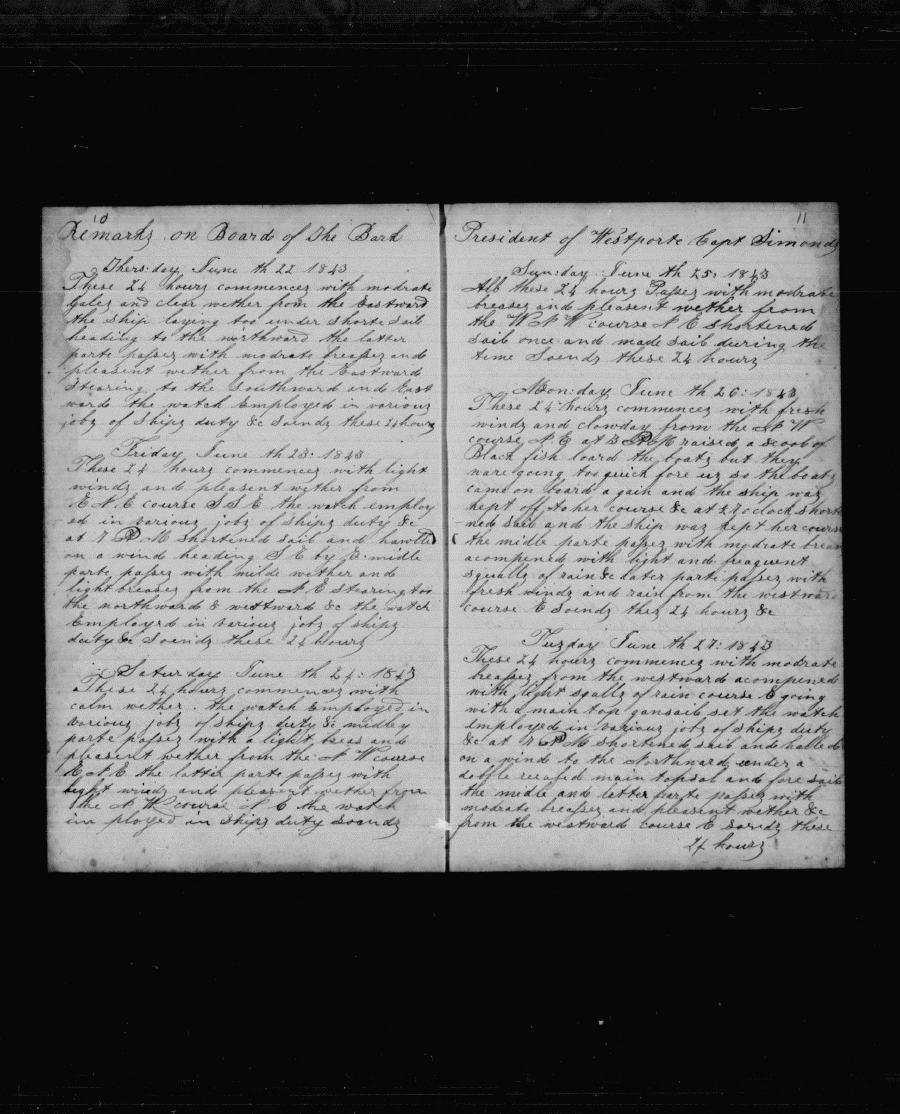 10
Remarks on Board of The Bark
Thersday June th 22 1843
These 24 hours commences with modrate
galez and clear wether from the Eastward
the ship laying too under shorte sail
heading to the northward the latter
parte passes with modrate breasez and
pleasent wether from the Eastward
stearing to the Southward and East
ward the watch Employed in various
jobz of Ships duty &c So endz these 24 hours
Friday June th 23: 1843
These 24 hours commences with light
windz and pleasent wether from
E N E course S S E the watch employ
ed in various jobz of ships duty &c
at 7 P M shortened sail and hawlld
on a wind heading S E by E midle
parte passes with milde wether and
light breases from the N E Stearing too
the northward & westward &c the watch
Employed in various jobz of ships
duty &c So endz these 24 hours
Saturday June th 24: 1843
These 24 hours commences with
calm wether the watch Employed in
various jobz of ships duty &c midley
parte passes with a light and
pleasent wether from the N W course
E N E the latter parte passes with
light windz and pleasent wether from
the N W course N E the watch
im ployed in ships duty So endz
11
President of Westporte Capt Simonds
Sunday June th 25: 1843
All these 24 hours Passes with modrate
breases and pleasent wether from
the W N W course N E shortened
sail once and made sail duering the
time So endz these 24 hours
Monday June th 26: 1843
These 24 hours commences with fresh
windz and clowday from the N W
course N E at 3 P M raised a scool of
Black fish loard the boatz but they
ware going too quick fore us so the boatz
came on board a gain and the ship was
kept off to her course &c at 7 oclock short
ned sail and the ship waz kept her course
the midle parte passes with modrate
acompened with light and frequent
squalls of rain &c later parte passes with
fresh windz and rain from the westward
course E So endz thes 24 hours &c
Tuzday June th 27: 1843
These 24 hours commences with modrate
breases from the westward acompened
with light sqalls of rain course E going
with a main top gansail set the watch
employed in various jobz of ships duty
&c at 7 P M shortened sail and halled
on a wind to the Northward under a
doble reeafed main topsal and fore sail
the midle and letter parte passes with
modrate breases and pleasent wether &c
from the westward course E So endz these
24 hours